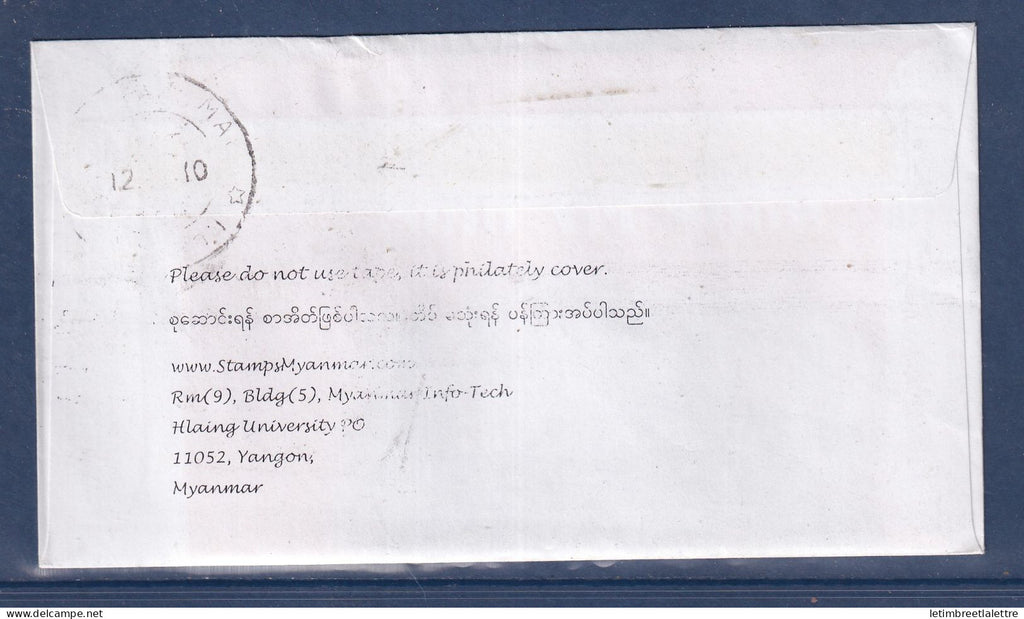 MA
12 10
Please do not use tape, it is philately cover.
စုဆောင်းရန် စာအိတ်ဖြစ်ပါသည်။ တိပ် မသုံးရန် ပန်ကြားအပ်ပါသည်။
www.StampsMyanmar.com
Rm(9), Bldg(5), Myanmar Info-Tech
Hlaing University PO
11052, Yangon,
Myanmar
www.delcampe.net
letimbreetlalettre